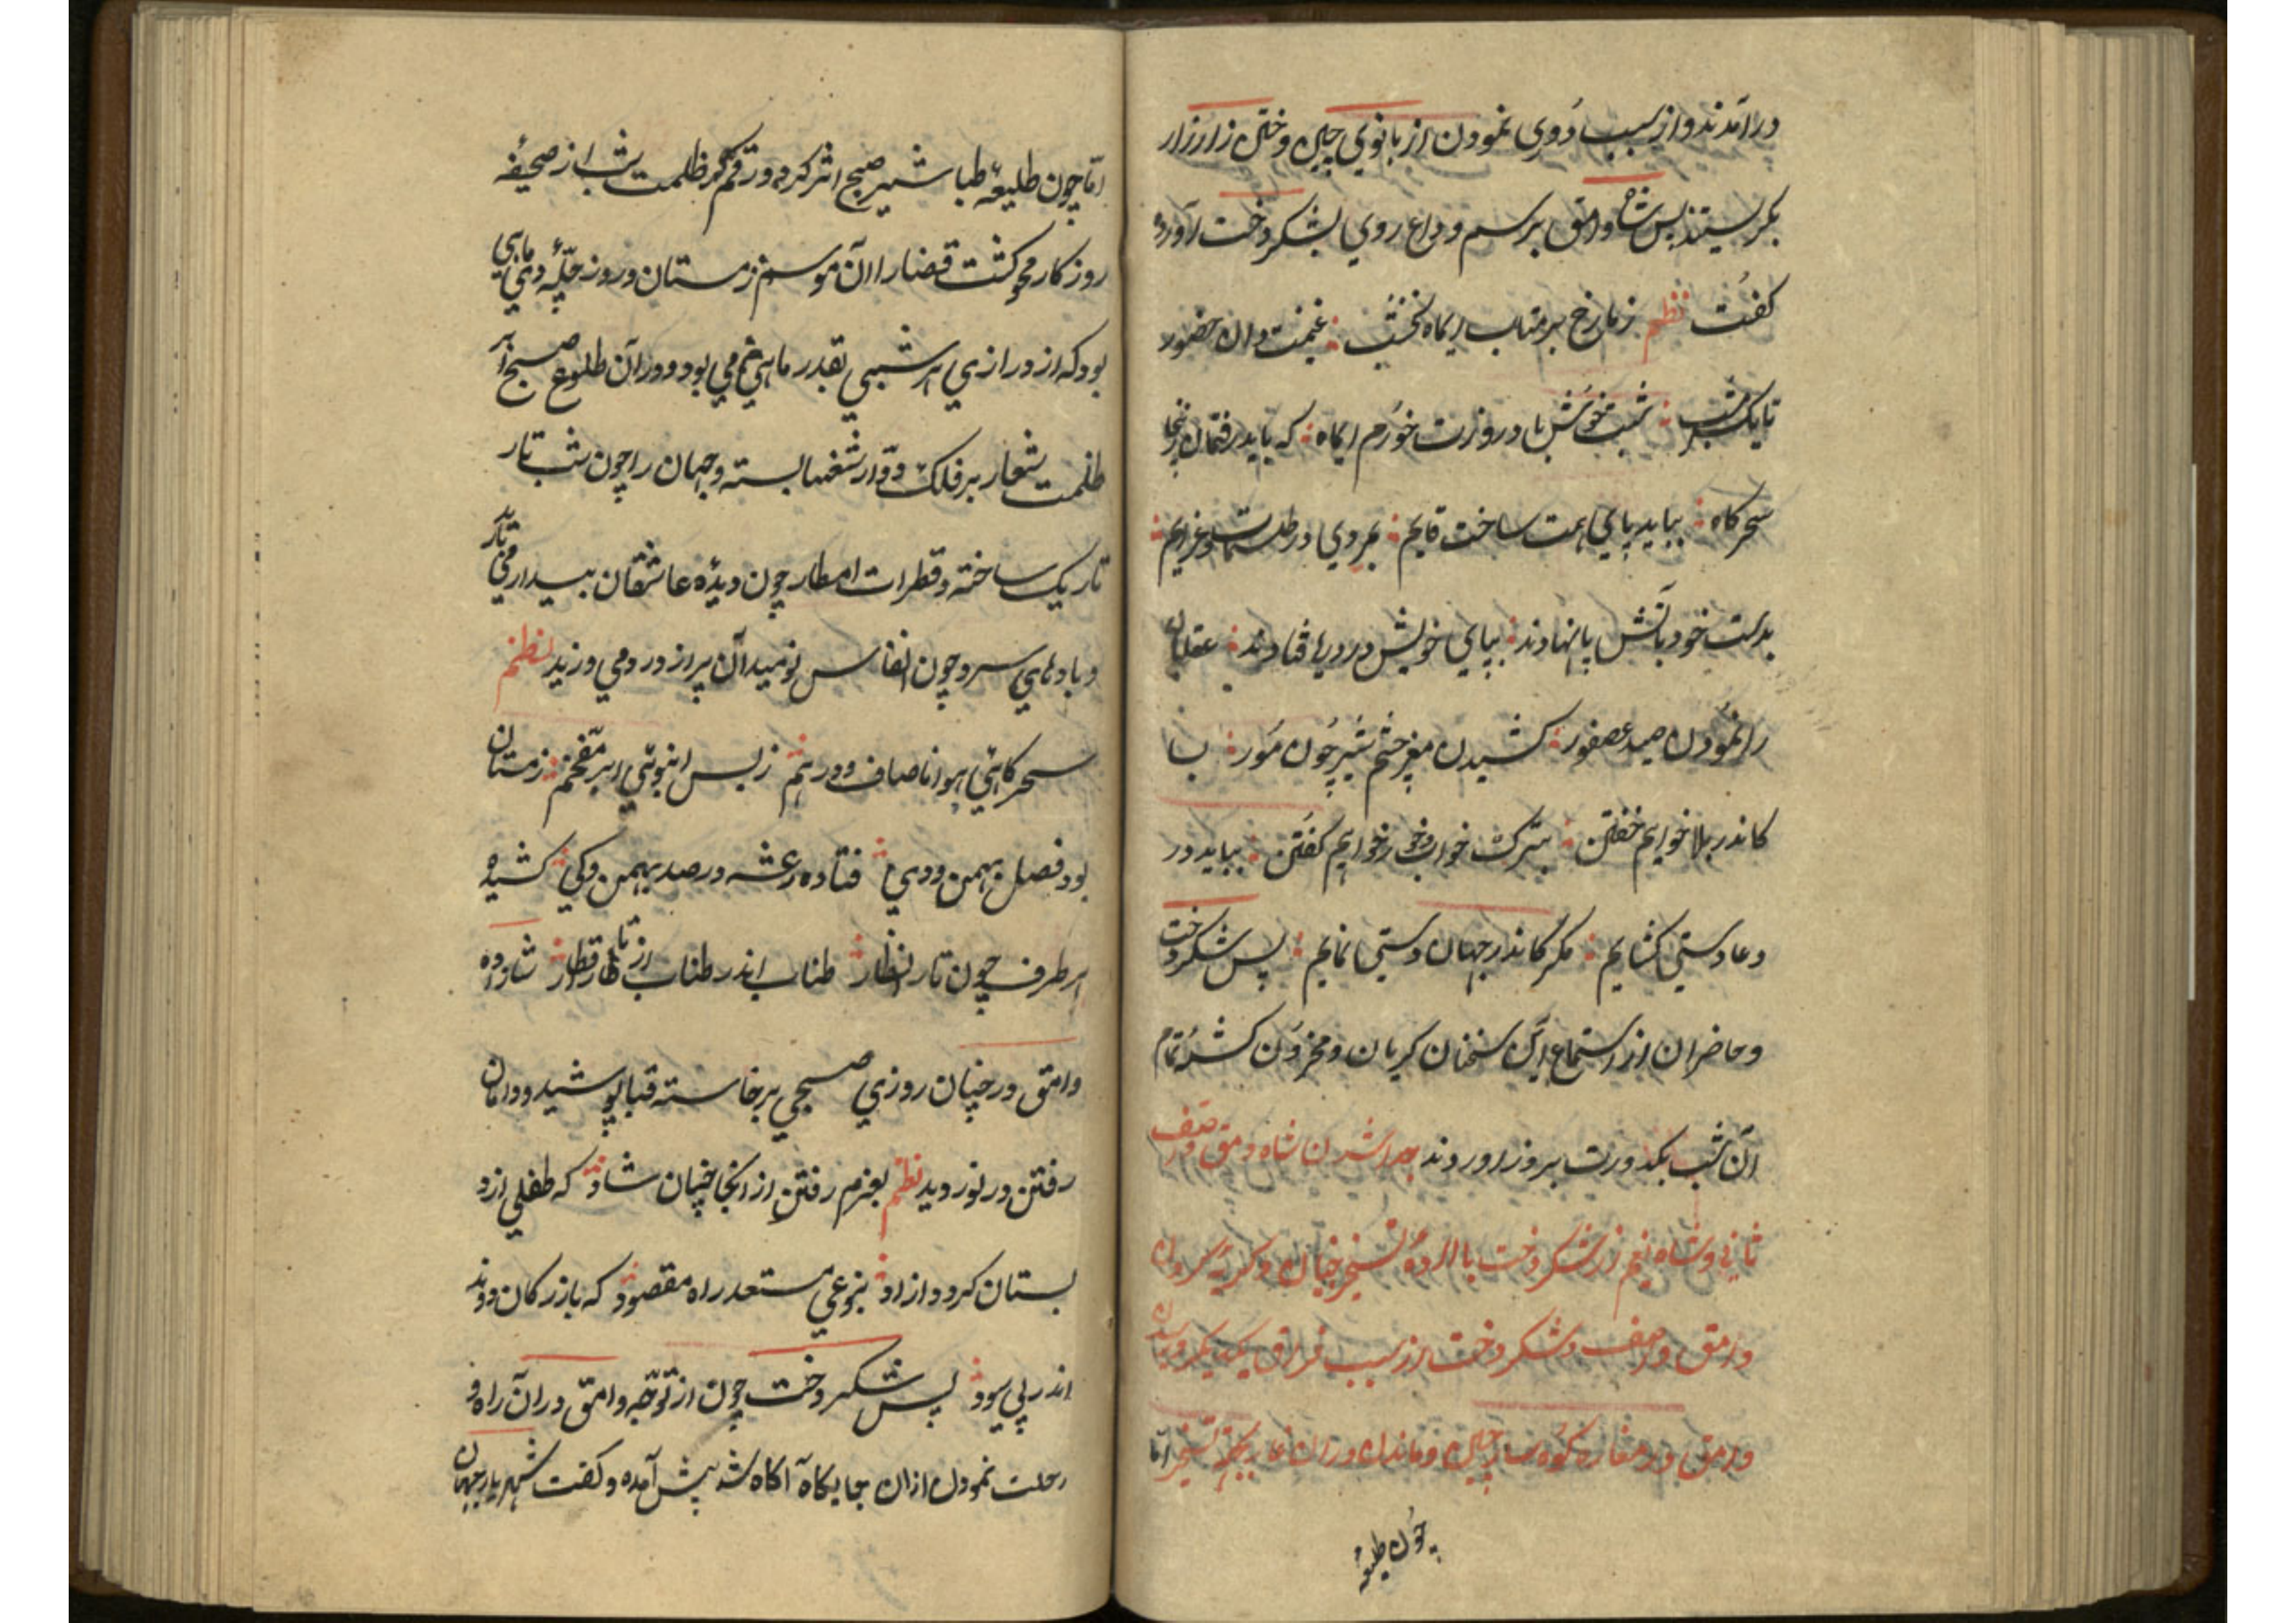 درآمدند و از سبب دوری نمودن از بانوي چین و ختن زار زار
بکریستند پس شاه وامق برسم وداع روي بشکردخت آورده
کفت نظم زمن رخ بر متاب ایماه نخشب غنیمت دان حضور
تا یک شب شبت خوش باد و روزت خورم ایماه که باید رفتمان
سحرکاه بباید پاي همت ساخت قایم بمردي در طلسمات و عزایم
بدست خود باتش پا نهادند بپاي خویش در دریا فتادند
را نمودن صید عصفور کشیدن مغز چشم شیر چون مور
کاندر بلا خواهیم خفتن بترک خواب و خور خواهیم کفتن بباید در
دعا دستي کشایم مکر کاندر جهان دستي نمایم پس شکردخت
و حاضران از استماع این سخنان کریان و محزون کشته تمام
آن شب بکدورت بروز اوردند جدا شدن شاه وامق و آصف
ثاني و شاه نعیم از شکردخت با اراده تسخیر و کریه کردن
وامق و آصف و شکردخت از سبب فراق یکدیکر
وامق در مغاره کوهسار چین و ماندن در ان غار اما
چون طلیعه
اما چون طلیعهٔ طباشیر صبح اثر کرد و رقم ظلمت شب از صحیفهٔ
روزکار محو کشت قضارا آن موسم زمستان و روز چلّهٔ دي ماهي
بود که از درازي هر شبي بقدر ماهي خم مي بود و در آن طلوع صبح ابر
ظلمت شعار بر فلک دوّار بسته و جهان را چون شب تار
تاریک ساخته و قطرات امطار چون دیدهٔ عاشقان بیدار مي بارید
و بادهاي سرد چون انفاس نومیدان پر از درد مي وزید نظم
سحرکاهي هوا ناصاف و درهم ز بس انبوهي ابر زمستان
بود فصل بهمن و دي فتاده رعشه در صد بهمن و کي کشیده
هر طرف چون تار انظار طناب اندر طناب از قطار شاهزاده
وامق در چنان روزي صبحي برخاسته قبا پوشید و دامان
رفتن در نوردید نظم بعزم رفتن از انجا چنان شاد که طفلي از
بستان کردد ازاد بنوعي مستعد راه مقصود که بازرکان دود
اندر پي سود پس شکردخت چون از توجّه وامق دران راه و
رحلت نمودن ازان جایکاه آکاه شد پیش آمده و کفت شهریار جهان